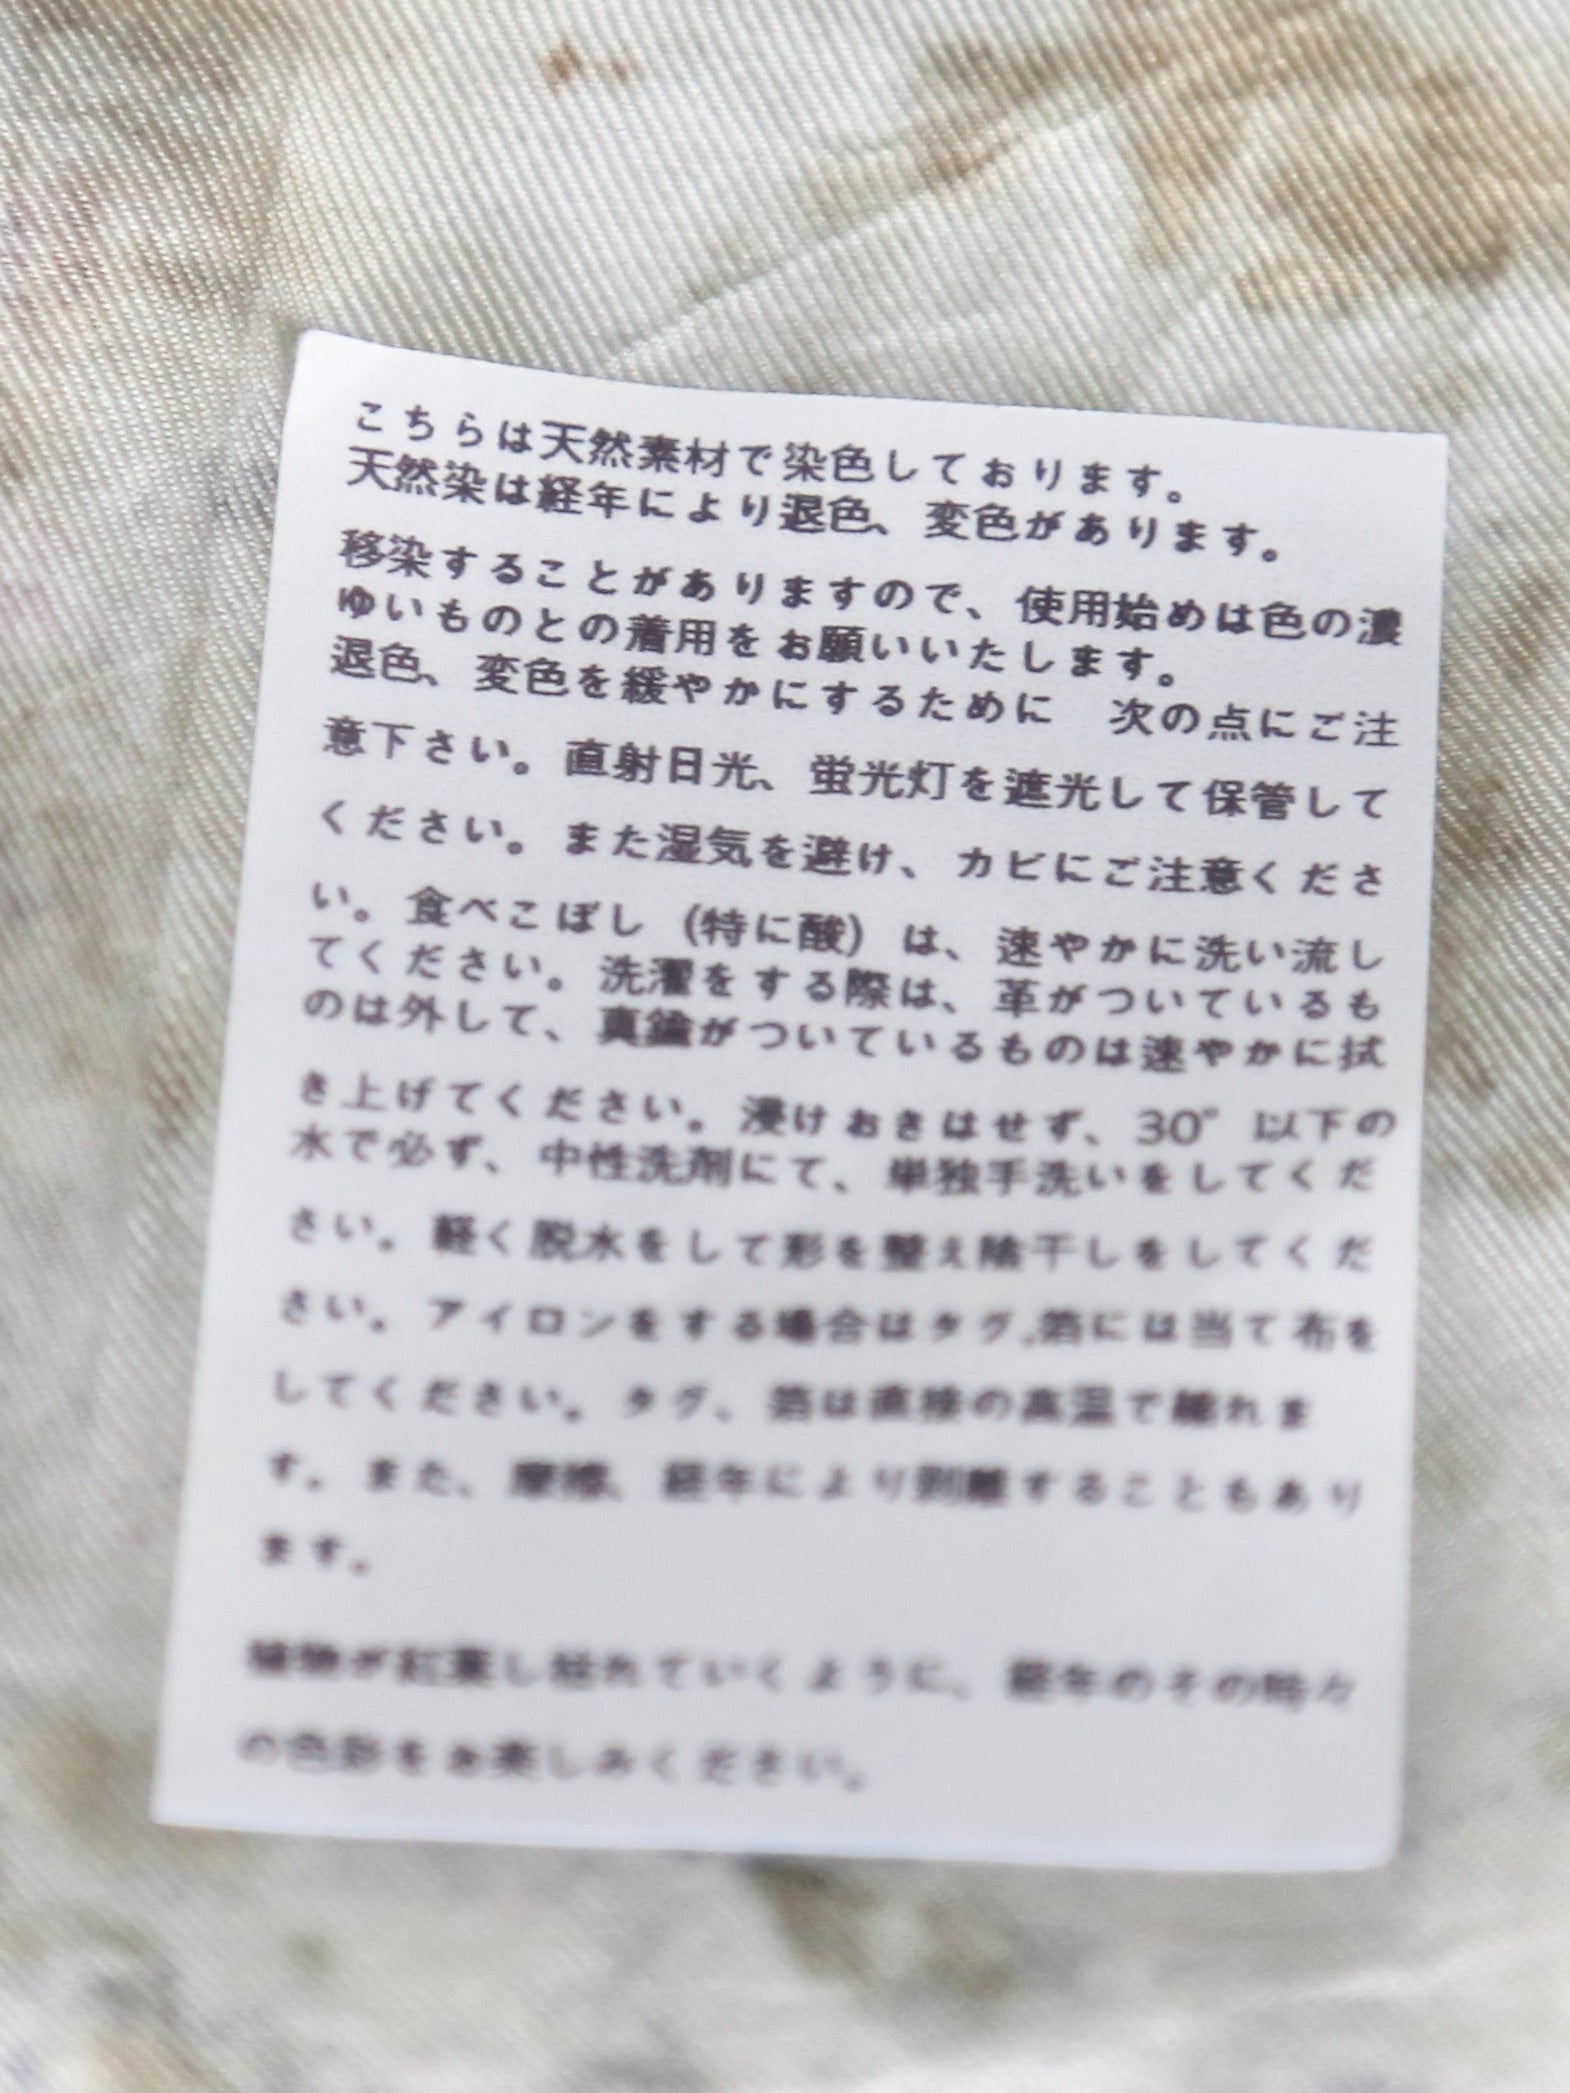 こちらは天然素材で染色しております。
天然染は経年により退色、変色があります。
移染することがありますので、使用始めは色の濃
ゆいものとの着用をお願いいたします。
退色、変色を緩やかにするために　次の点にご注
意下さい。直射日光、蛍光灯を遮光して保管して
ください。また湿気を避け、カビにご注意くださ
い。食べこぼし（特に酸）は、速やかに洗い流し
てください。洗濯をする際は、革がついているも
のは外して、真鍮がついているものは速やかに拭
き上げてください。浸けおきはせず、30°以下の
水で必ず、中性洗剤にて、単独手洗いをしてくだ
さい。軽く脱水をして形を整え陰干しをしてくだ
さい。アイロンをする場合はタグ,箔には当て布を
してください。タグ、箔は直接の高温で離れま
す。また、摩擦、経年により剥離することもあり
ます。
植物が紅葉し枯れていくように、経年のその時々
の色彩をお楽しみください。